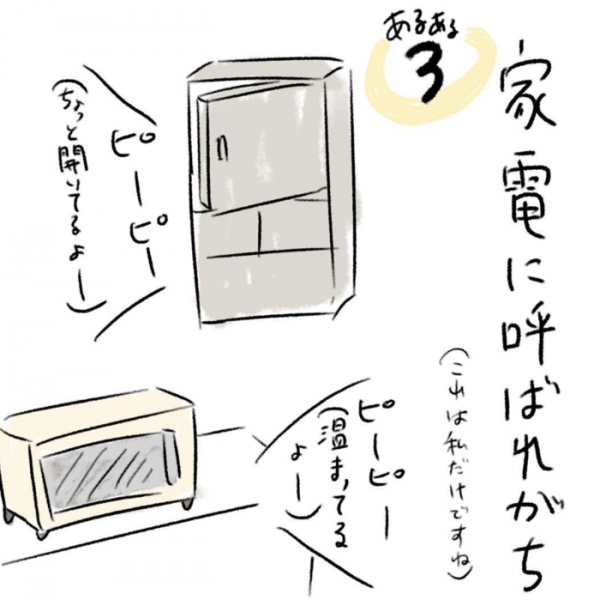 あるある
3
家電に呼ばれがち
(これは私だけですね)
ピーピー
(ちょっと開いてるよー)
ピーピー
(温まってる
よー)